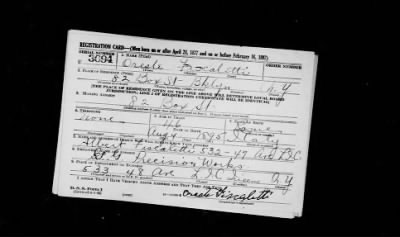 REGISTRATION CARD—(Men born on or after April 28, 1877 and on or before February 16, 1897)
SERIAL NUMBER
1. NAME (Print)
ORDER NUMBER
3094
Oreste Fiscaletti
82 Box St Bklyn N-Y
[THE PLACE OF RESIDENCE GIVEN ON THE LINE ABOVE WILL DETERMINE LOCAL BOARD
JURISDICTION; LINE 2 OF REGISTRATION CERTIFICATE WILL BE IDENTICAL]
3. MAILING ADDRESS
82 Box St
4. TELEPHONE
none
46
Aug 1895
Italy
Albert Fiscaletti 532-47 Ave L.I.C.
Precision Works
533 48 Ave L.I.C. N.Y
I AFFIRM THAT I HAVE VERIFIED ABOVE ANSWERS AND THAT THEY ARE TRUE.
D. S. S. Form 1
Oreste Fiscaletti